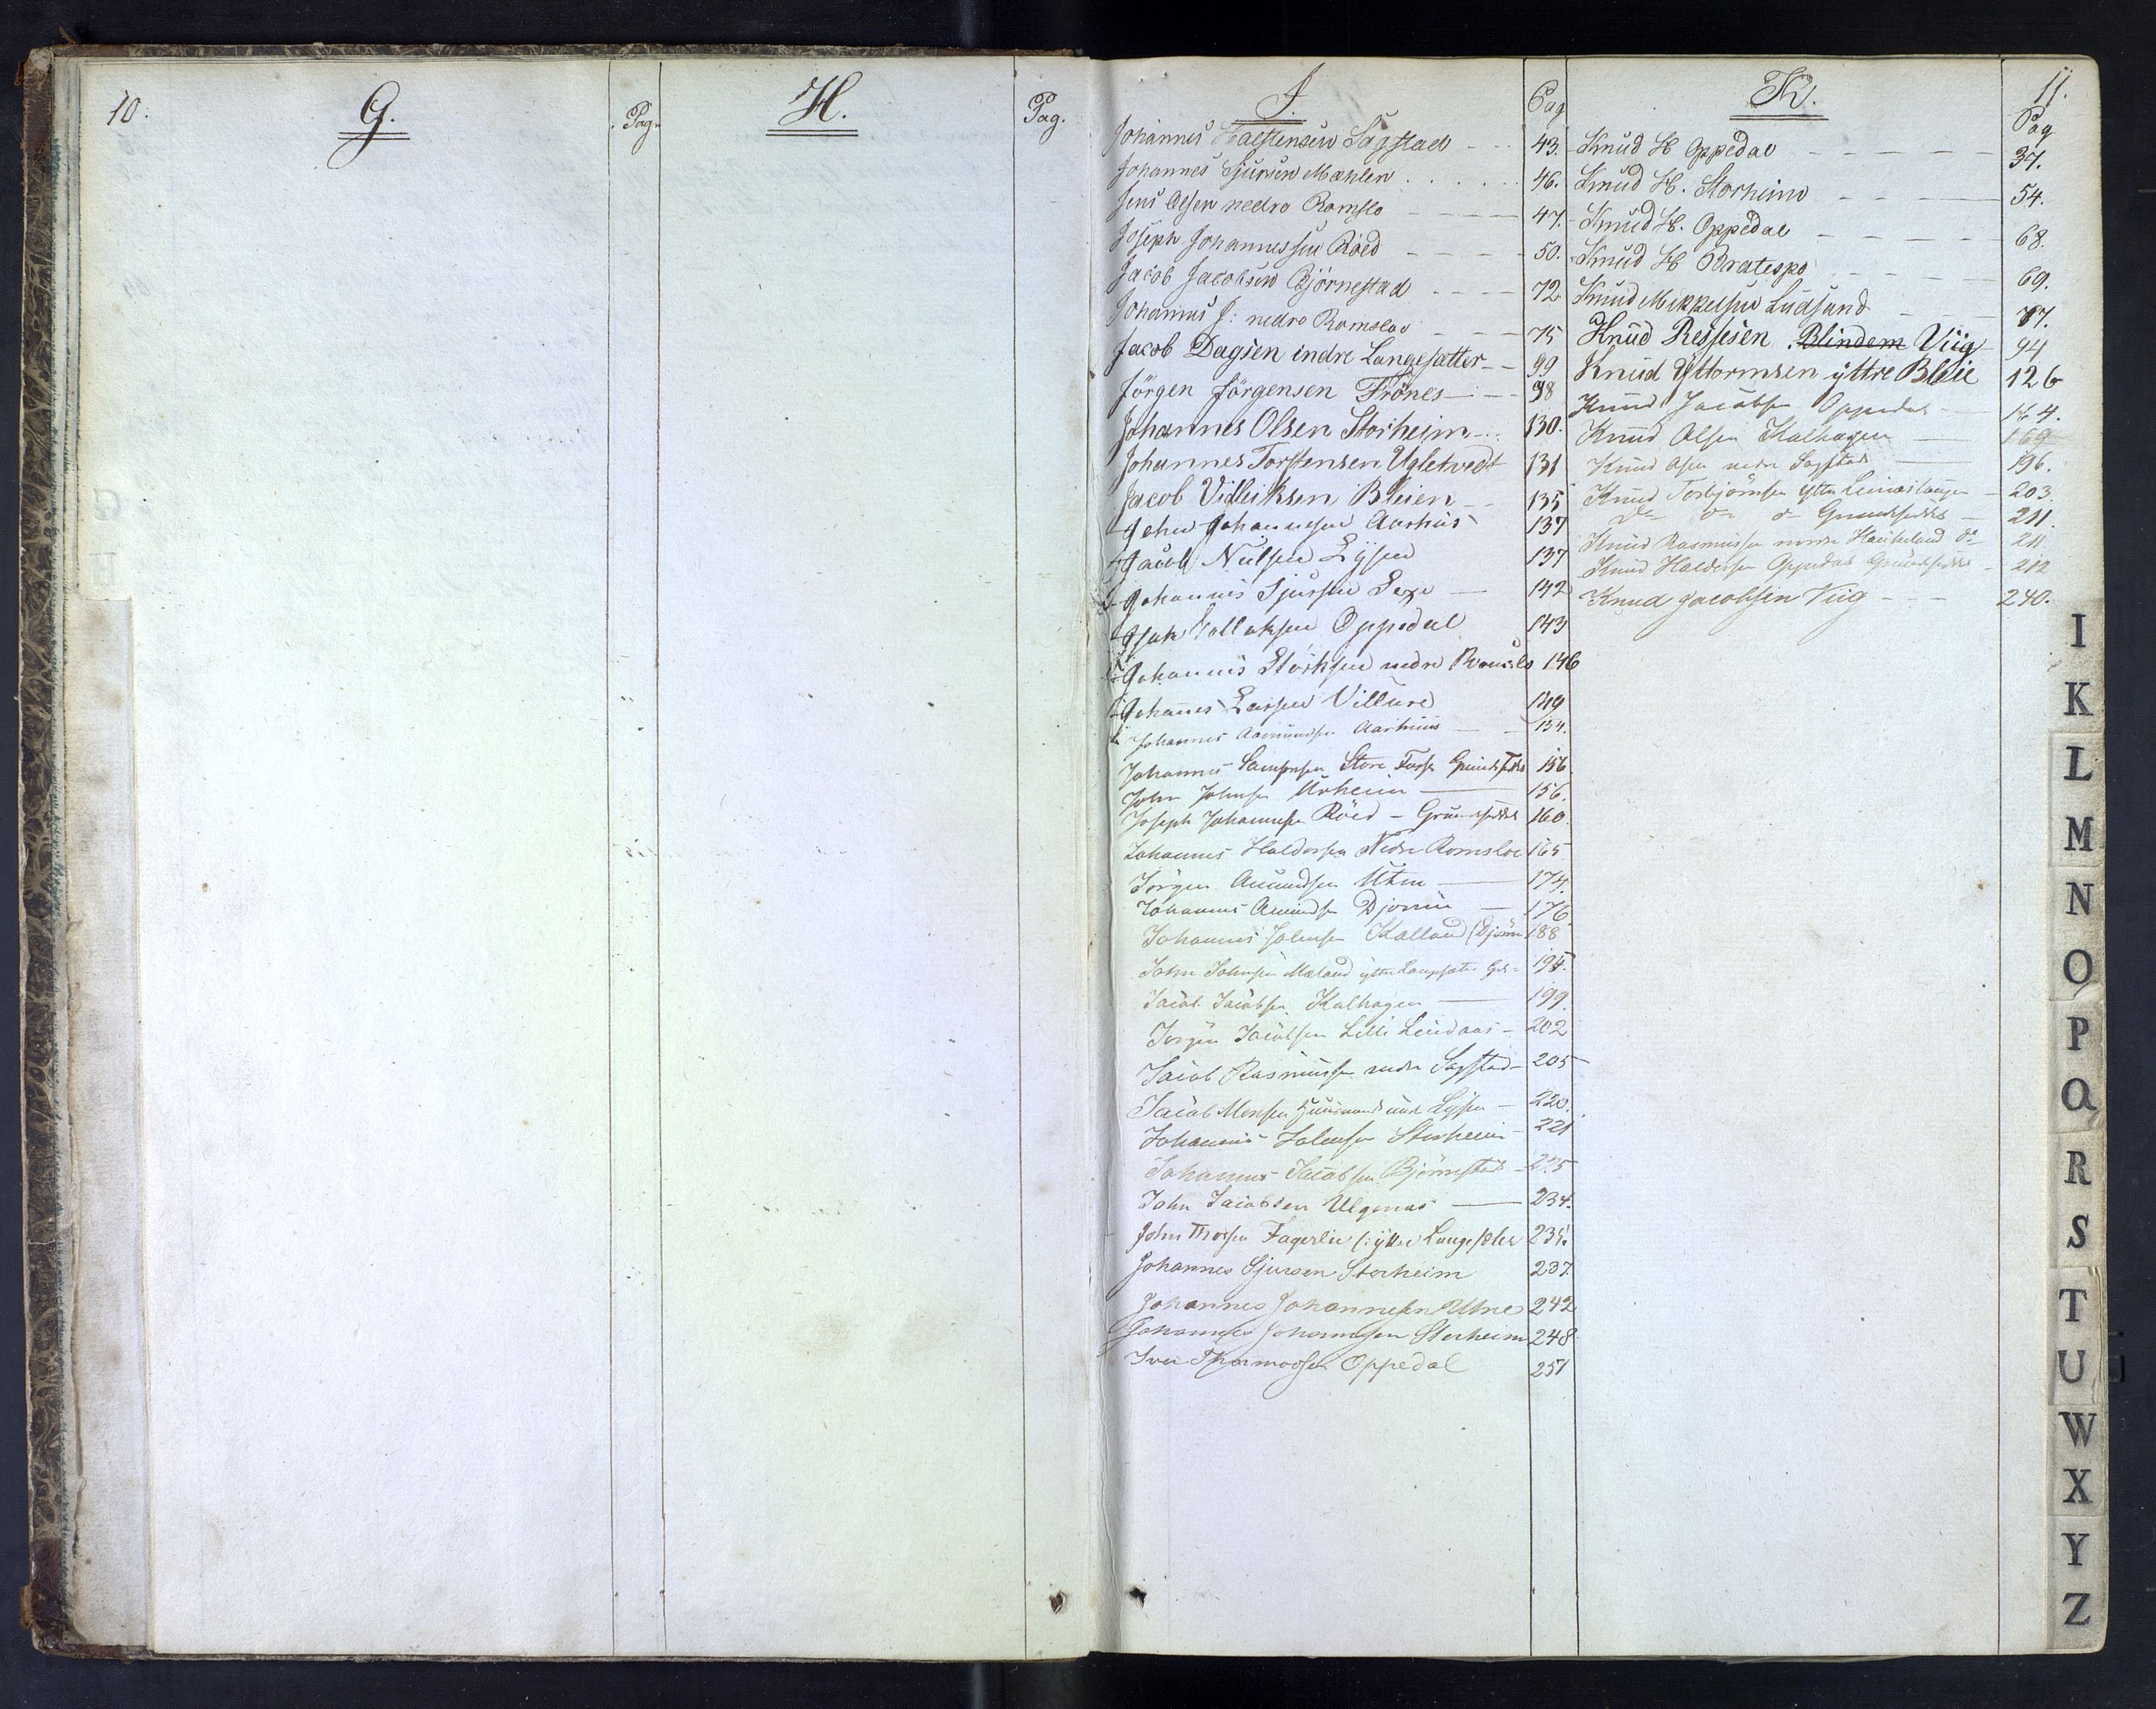 10.
G.
Pag.
H.
Pag.
J.
Pag
Johannes Halstensen Sagstad 43.
Johannes Sjursen Mæhlen 46.
Jens Olsen nedre Romslo 47.
Joseph Johannessen Röed 50.
Jacob Jacobsen Bjørnestad 72
Johannes J: nedre Romsloe 75
Jacob Dagsen indre Langesætter 99
Jörgen Jörgensen Frönes 98
Johannes Olsen Storheim 130.
Johannes Torstensen Ugletvedt 131
Jacob Vidleiksen Bleien 135
John Johannesen Aarhus 137
Jacob Nielsen Lysen 137
Johannes Sjursen Sexe 142
Isak Tollaksen Oppedal 143
Johannes Størksen nedre Romslo 146
Johannes Larsen Villure 149
Johannes Aamundsen Aarhuus 154.
Johannes Samsonsen Store Fosse Grundsedel 156
John Johnsen Urheim 156.
Joseph Johannesen Röed - Grundseddel 160
Johannes Haldorsen Nedre Romsloe 165
Jörgen Amundsen Utne 174.
Johannes Amundsen Djonne 176
Johannes Johnsen Kalland (Djønne 188
John Johnsen Mæland yttre Langesæter 195.
Jacob Jacobsen Kalhagen 199.
Jørgen Jacobsen Lille Lindaas 202
Jacob Rasmussen nedre Sagstad 205
Jacob Monsen Huusmand und. Lysen 220.
Johannes Johnsen Storheim 221
Johannes Jacobsen Bjørnestad 225
John Jacobsen Ulgenæs 234.
John Thorsen Fagerlie (: yttre Langesæter 235.
Johannes Sjursen Storheim 237.
Johannes Johannesen Utne 242
Johannes Johannesen Storheim 248
Iver Thormodsen Oppedal 251
K.
11.
Pag
Knud H Oppedal 37.
Knud H. Storheim 54.
Knud H. Oppedal 68.
Knud H Bratespe 69.
Knud Mikkelsen Lüdsund 77.
Knud Reisesen Blindem Viig 94
Knud Guttormsen yttre Bleie 126
Knud Jacobsen Oppedal 164.
Knud Olsen Kalhagen 169
Knud Olsen nedre Sagstad 196.
Knud Torbjørnsen yttre 203.
do do do Grundseddel 211.
Knud Rasmussen nordre Haukeland do 211
Knud Haldorsen Oppedal Grundseddel 212
Knud Jacobsen Viig 240.
I
K
L
M
N
O
P
Q
R
S
T
U
W
X
Y
Z